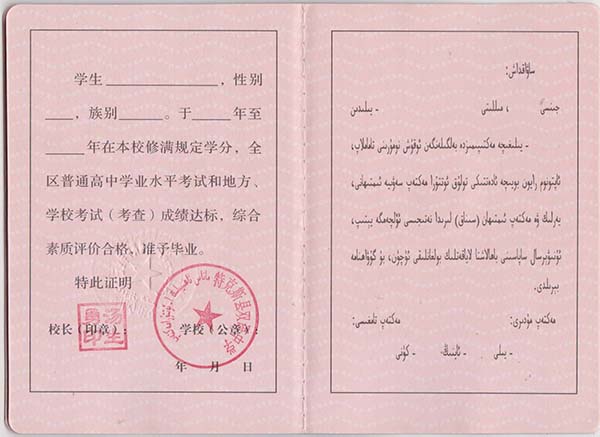 学生＿＿＿＿＿＿＿＿，性别
＿＿，族别＿＿＿。于＿＿＿年至
＿＿＿年在本校修满规定学分，全
区普通高中学业水平考试和地方、
学校考试（考查）成绩达标，综合
素质评价合格，准予毕业。
特此证明
校长（印章）：
学校（公章）：
特克斯县双语中学
年 月 日
ساۋاقداش:
جىنسى ، مىللىتى - يىلىدىن
- يىلىغىچە مەكتىپىمىزدە بەلگىلەنگەن ئوقۇش نومۇرىنى تاماملاپ،
ئاپتونوم رايون بويىچە ئادەتتىكى تولۇق ئوتتۇرا مەكتەپ سەۋىيە ئىمتىھانى،
يەرلىك ۋە مەكتەپ ئىمتىھان (سىناق) لىرىدا نەتىجىسى ئۆلچەمگە يېتىپ،
ئۇنىۋېرسال ساپاسىنى باھالاشتا لاياقەتلىك بولغانلىقى ئۈچۈن، بۇ گۇۋاھنامە
بېرىلدى.
مەكتەپ مۇدىرى: مەكتەپ تامغىسى:
- يىلى - ئاينىڭ - كۈنى